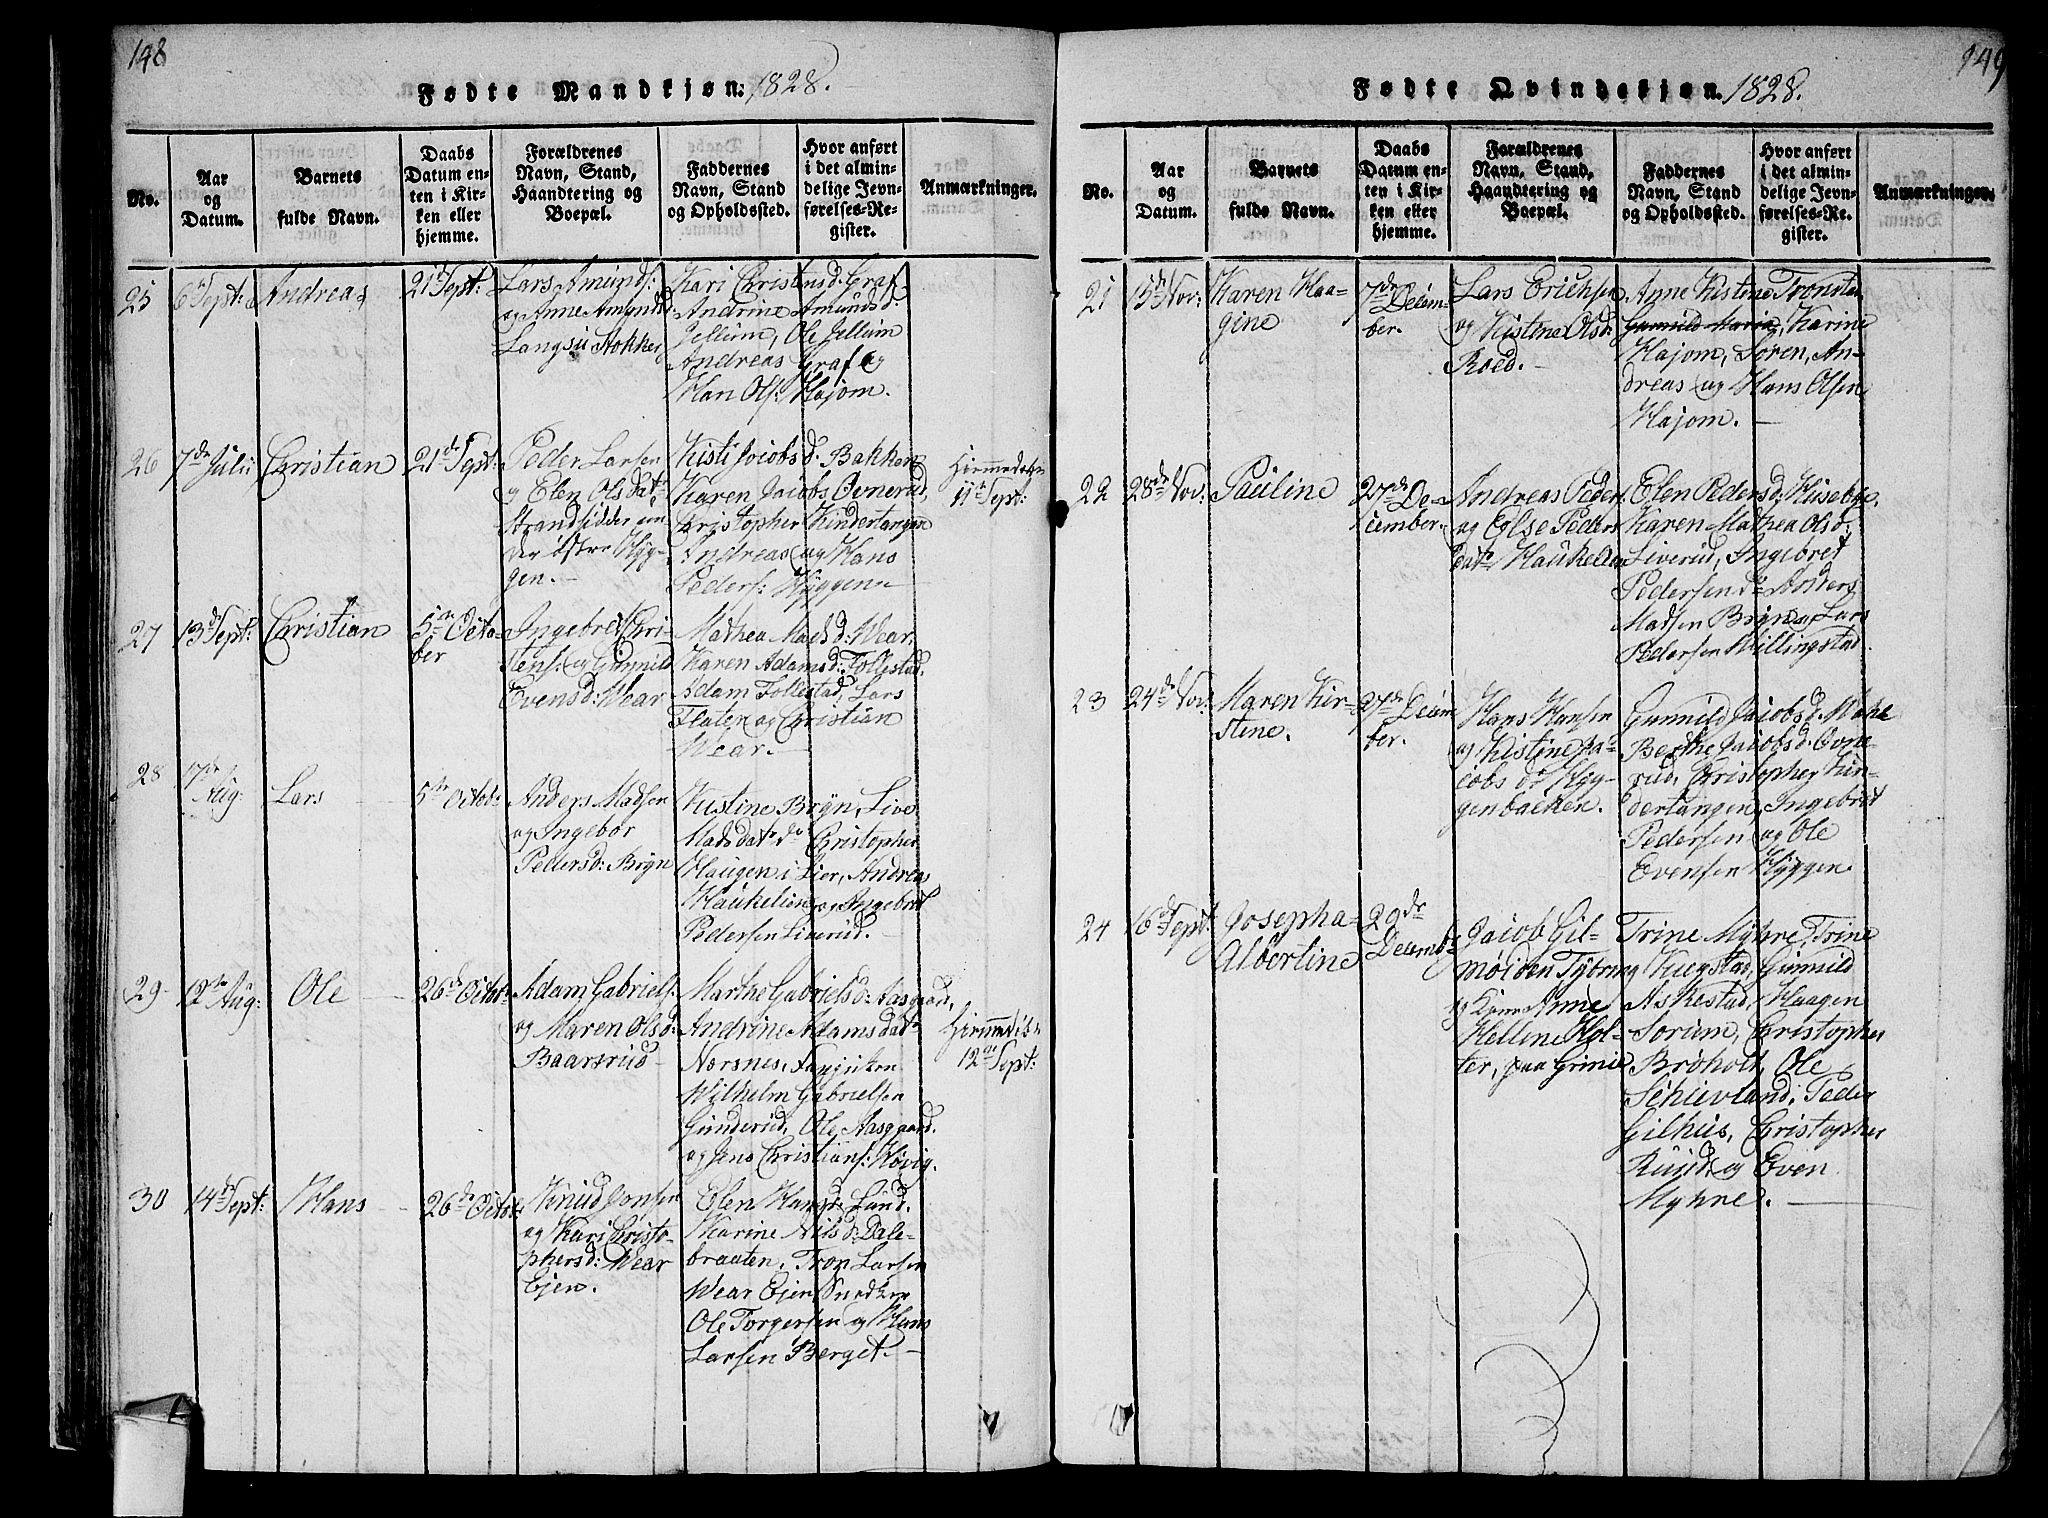 148
Fødte Mandkjøn. 1828.
No.
Aar
og
Datum.
Barnets
fulde Navn.
Daabs
Datum en-
ten i Kir-
ken eller
hjemme.
Forældrenes
Navn, Stand,
Haandtering og
Boepæl.
Faddernes
Navn, Stand
og Opholdssted.
Hvor anført
i det almin-
delige Jevn-
førelses-Re-
gister.
Anmærkninger.
25
6 Sept:
Andreas
21 Sept:
Lars Amunds:
og Anne Amundsd:
Langsü Stokker
Kari Christensd: Graf
Andrine Amundsd:
Jellum, Ole Jellum
Andreas Graf og
Han Ols: Hajom.
26
7de Julii
Christian
21de Sept:
Peder Larsen
og Elen Olsdat:
Strandsidder un
der østre Hÿg-
gen.
Kisti Jacobsd: Bakken
Karen Jacobs Ovnerud,
Christopher Kindertangen
Andreas og Hans
Peders: Hÿggen
Hiemmedøbt
11te Sept:
27
13de Sept:
Christian
5te Octo-
ber
Ingebret Chri-
stens: og Gunnild
Evensd: Wear
Mathea Madsd: Wear.
Karen Adamsd: Follestad,
Adam Follestad, Lars
Flaten og Christian
Wear.
28
17de
Aug:
Lars
5te Octob:
Anders Madsen
og Ingebor
Pedersd: Brÿn
Kistine Brÿn, Live
Madsdatr do Christopher
Haugen i Lier, Andreas
Haukelien og Ingebret
Pedersen Liverud.
29
12te Aug:
Ole
26de Octbr:
Adam Gabriels:
og Maren Olsd:
Baarsrud
Marthe Gabrielsd: Aasgaard,
Andrine Adamsdatr
Norsnes,
Wilhelm Gabrielsen
Gunderud, Ole Aasgaard.
og Jens Christians: Høvig.
Hiemmedøbt
12te Sept:
30
14de Sept:
Hans
26de Octob:
Knud Jonsen
og Kari Christo-
phersd: Wear
Ejen.
Elen Hansd: Lund.
Karine Nilsd: Dale-
braaten, Tron Larsen
Wear Ejen, Snedker
Ole Torgersen og Hans
Larsen Berget.
149
Fødte Qvindekjøn. 1828.
No.
Aar
og
Datum.
Barnets
fulde Navn.
Daabs
Datum en-
ten i Kir-
ken eller
hjemme.
Forældrenes
Navn, Stand,
Haandtering og
Boepæl.
Faddernes
Navn, Stand
og Opholdssted.
Hvor anført
i det almin-
delige Jevn-
førelses-Re-
gister.
Anmærkninger.
21
15de Nov:
Karen Haa-
gine
7de Decem-
ber.
Lars Erichsen
og Kistine Olsd:
Roed.
Anne Kistine Tronstad
Gunnild Maria, Karine
Hajom, Søren, An-
dreas og Hans Olsen
Hajom.
22
28de Nov:
Pauline
27de De-
cember.
Andreas Peders:
og Else Peders
datr Haukelien
Elen Pedersd: Husebye.
Karen Mathea Olsd:
Liverud, Ingebret
Pedersen do Anders
Madsen Brÿn og Lars
Pedersen Willingstad.
23
24de Nov:
Maren Kir-
stine.
27de Decem
ber.
Hans Hansen
og Kistine Ja-
cobsdr Hÿg-
genbakken.
Gunnild Jacobsd:
Berthe Jacobsd: Ovne-
rud, Christopher Kin-
dertangen, Ingebret
Pedersen og Ole
Evensen Hÿggen.
24
16de Sept:
Josepha
Albertine
29de
Decemb:
Jacob Gil-
Tÿbring
og Anne
Hellene Hol-
ter, paa Grinie
Trine Mÿhre, Trine
Kiøgstad, Gunnild
Askestad, Haagen
Sorum, Christopher
Brøholt, Ole
Schievland, Peder
Gilhus, Christopher
Ruud og Even
Mÿhre.